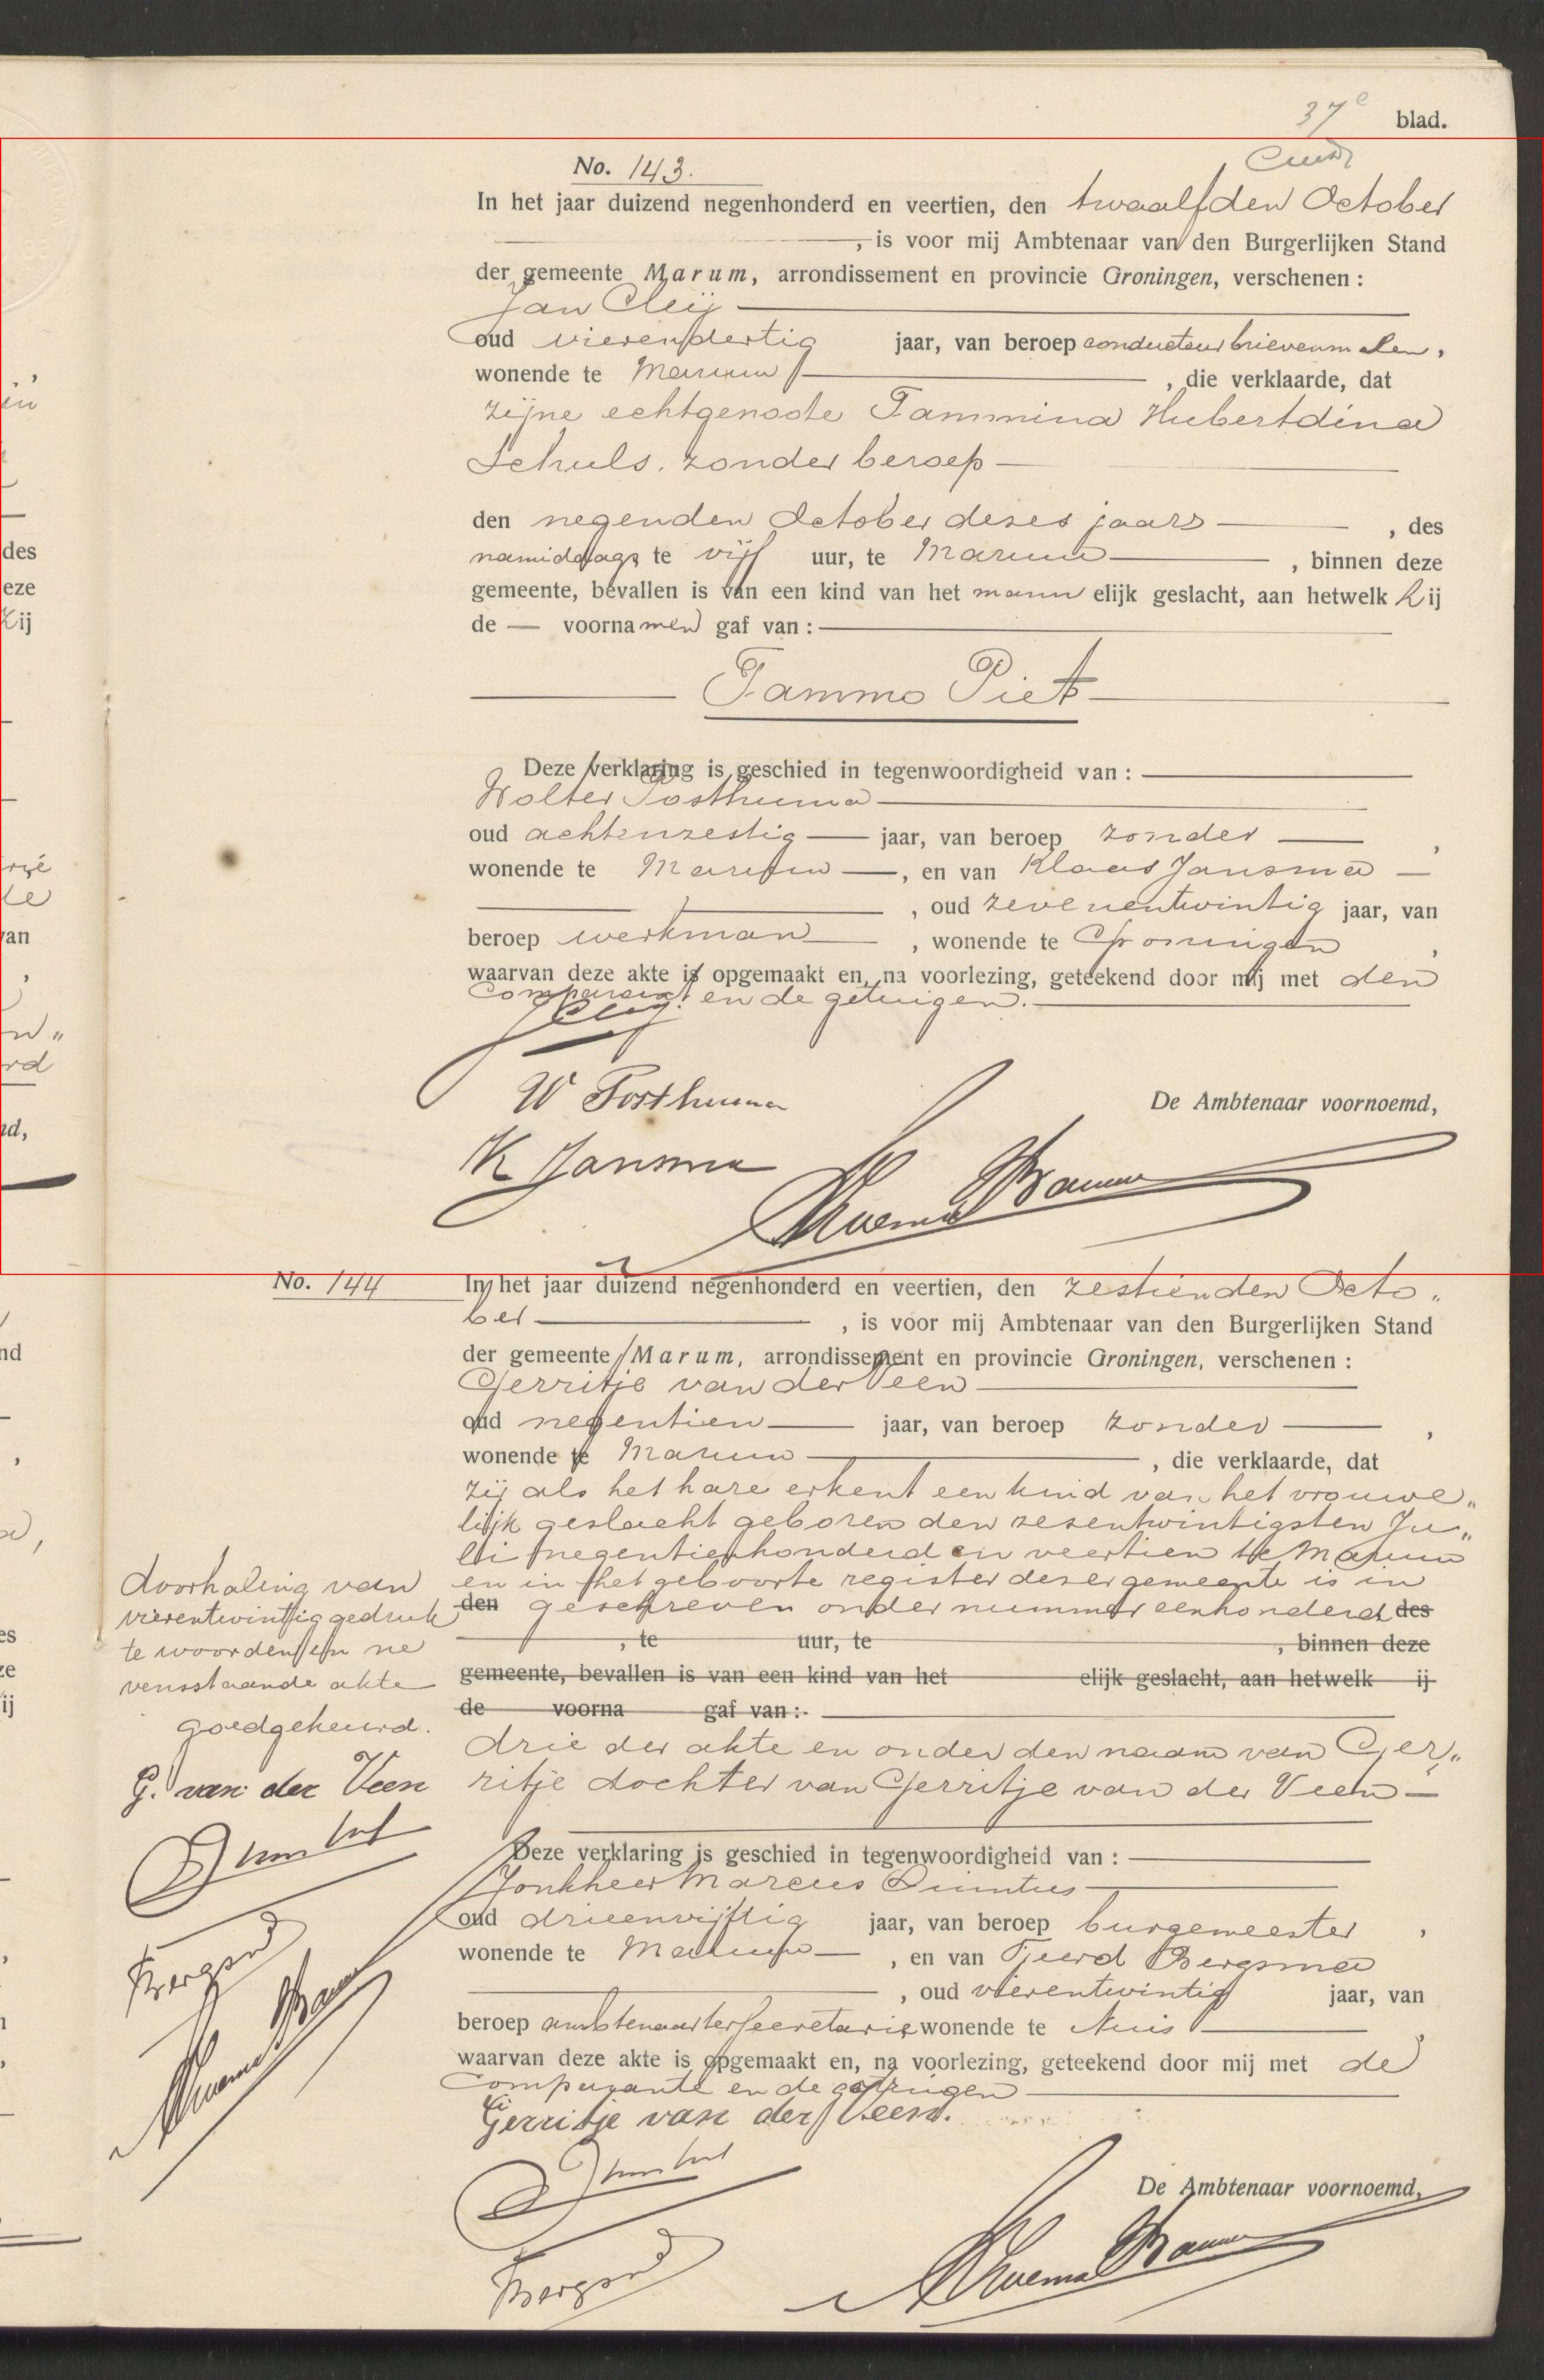 37e blad.
No. 143.
In het jaar duizend negenhonderd en veertien, den twaalfden October
, is voor mij Ambtenaar van den Burgerlijken Stand
der gemeente Marum, arrondissement en provincie Groningen, verschenen :
Jan Cleij
oud vierendertig jaar, van beroep conducteur brievenmalen,
wonende te Marum , die verklaarde, dat
zijne echtgenoote Tammina Hubertdina
Schuls, zonder beroep
den negenden October dezes jaars , des
namiddags te vijf uur, te Marum , binnen deze
gemeente, bevallen is van een kind van het mann elijk geslacht, aan hetwelk hij
de — voornamen gaf van :
Tammo Piet
Deze verklaring is geschied in tegenwoordigheid van :
Wolter Posthuma
oud achtenzestig jaar, van beroep zonder ,
wonende te Marum , en van Klaas Jansma
, oud zevenentwintig jaar, van
beroep werkman , wonende te Groningen ,
waarvan deze akte is opgemaakt en, na voorlezing, geteekend door mij met den
comparant en de getuigen.
J Cleij.
W Posthuma
De Ambtenaar voornoemd,
K Jansma
No. 144
In het jaar duizend negenhonderd en veertien, den zestienden Octo„
ber , is voor mij Ambtenaar van den Burgerlijken Stand
der gemeente Marum, arrondissement en provincie Groningen, verschenen :
Gerritje van der Veen
oud negentien jaar, van beroep zonder ,
wonende te Marum , die verklaarde, dat
zij als het hare erkent een kind van het vrouwe„
lijk geslacht geboren den zesentwintigsten Ju„
li negentienhonderd en veertien te Marum
en in het geboorte register dezer gemeente is in
den geschreven onder nummer eenhonderd des
, te uur, te , binnen deze
gemeente, bevallen is van een kind van het elijk geslacht, aan hetwelk ij
de voorna gaf van :
drie der akte en onder den naam van Ger„
ritje dochter van Gerritje van der Veen
Doorhaling van
vierentwintig gedruk
te woorden in ne
vensstaande akte
goedgekeurd.
G. van der Veen
Bergsma
Deze verklaring is geschied in tegenwoordigheid van :
Jonkheer Marcus Quintus
oud drieenvijftig jaar, van beroep burgemeester ,
wonende te Marum , en van Tjeerd Bergsma
, oud vierentwintig jaar, van
beroep ambtenaar ter secretarie wonende te Nuis ,
waarvan deze akte is opgemaakt en, na voorlezing, geteekend door mij met de
comparante en de getuigen
Gerritje van der Veen.
De Ambtenaar voornoemd,
Bergsma